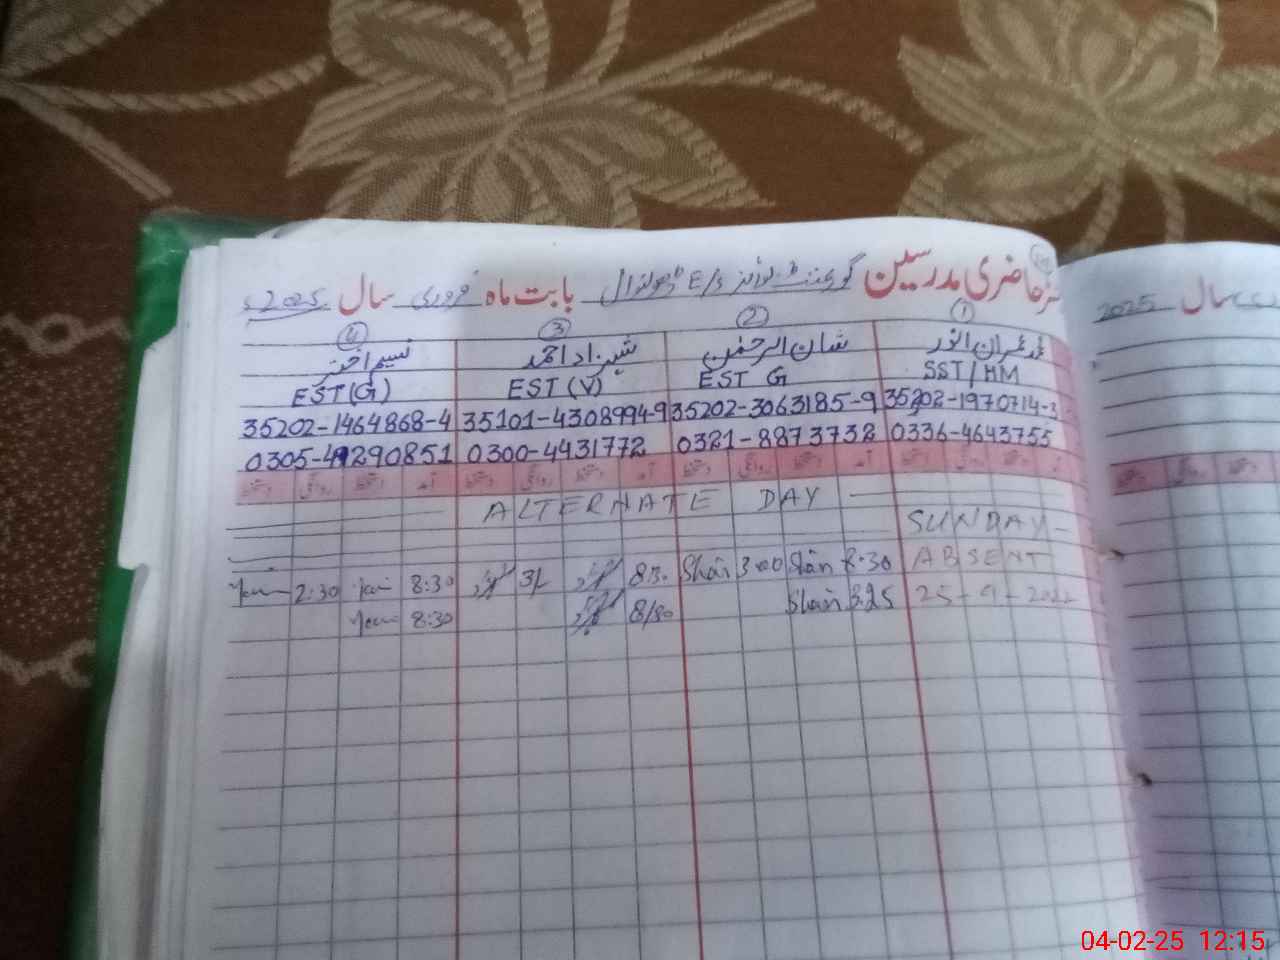 حاضری مدرسین گورنمنٹ بوائز E/S ڈھولنوال بابت ماہ فروری سال 2025ء
سال 2025
① ② ③ ④
محمد عمران انور شان الرحمٰن شہزاد احمد نسیم اختر
SST/HM EST G EST (V) EST (G)
35202-1970714-3 35202-3063185-9 35101-4308994-9 35202-1464868-4
0336-4643755 0321-8873732 0300-4431772 0305-4290851
آمد دستخط روانگی دستخط آمد دستخط روانگی دستخط آمد دستخط روانگی دستخط آمد دستخط روانگی دستخط
ALTERNATE DAY
SUNDAY
ABSENT 8:30 Shan 3:00 Shan 8:30 31 8:30 2:30
25-9-2022 8:25 Shan 8/30 8:30
04-02-25 12:15